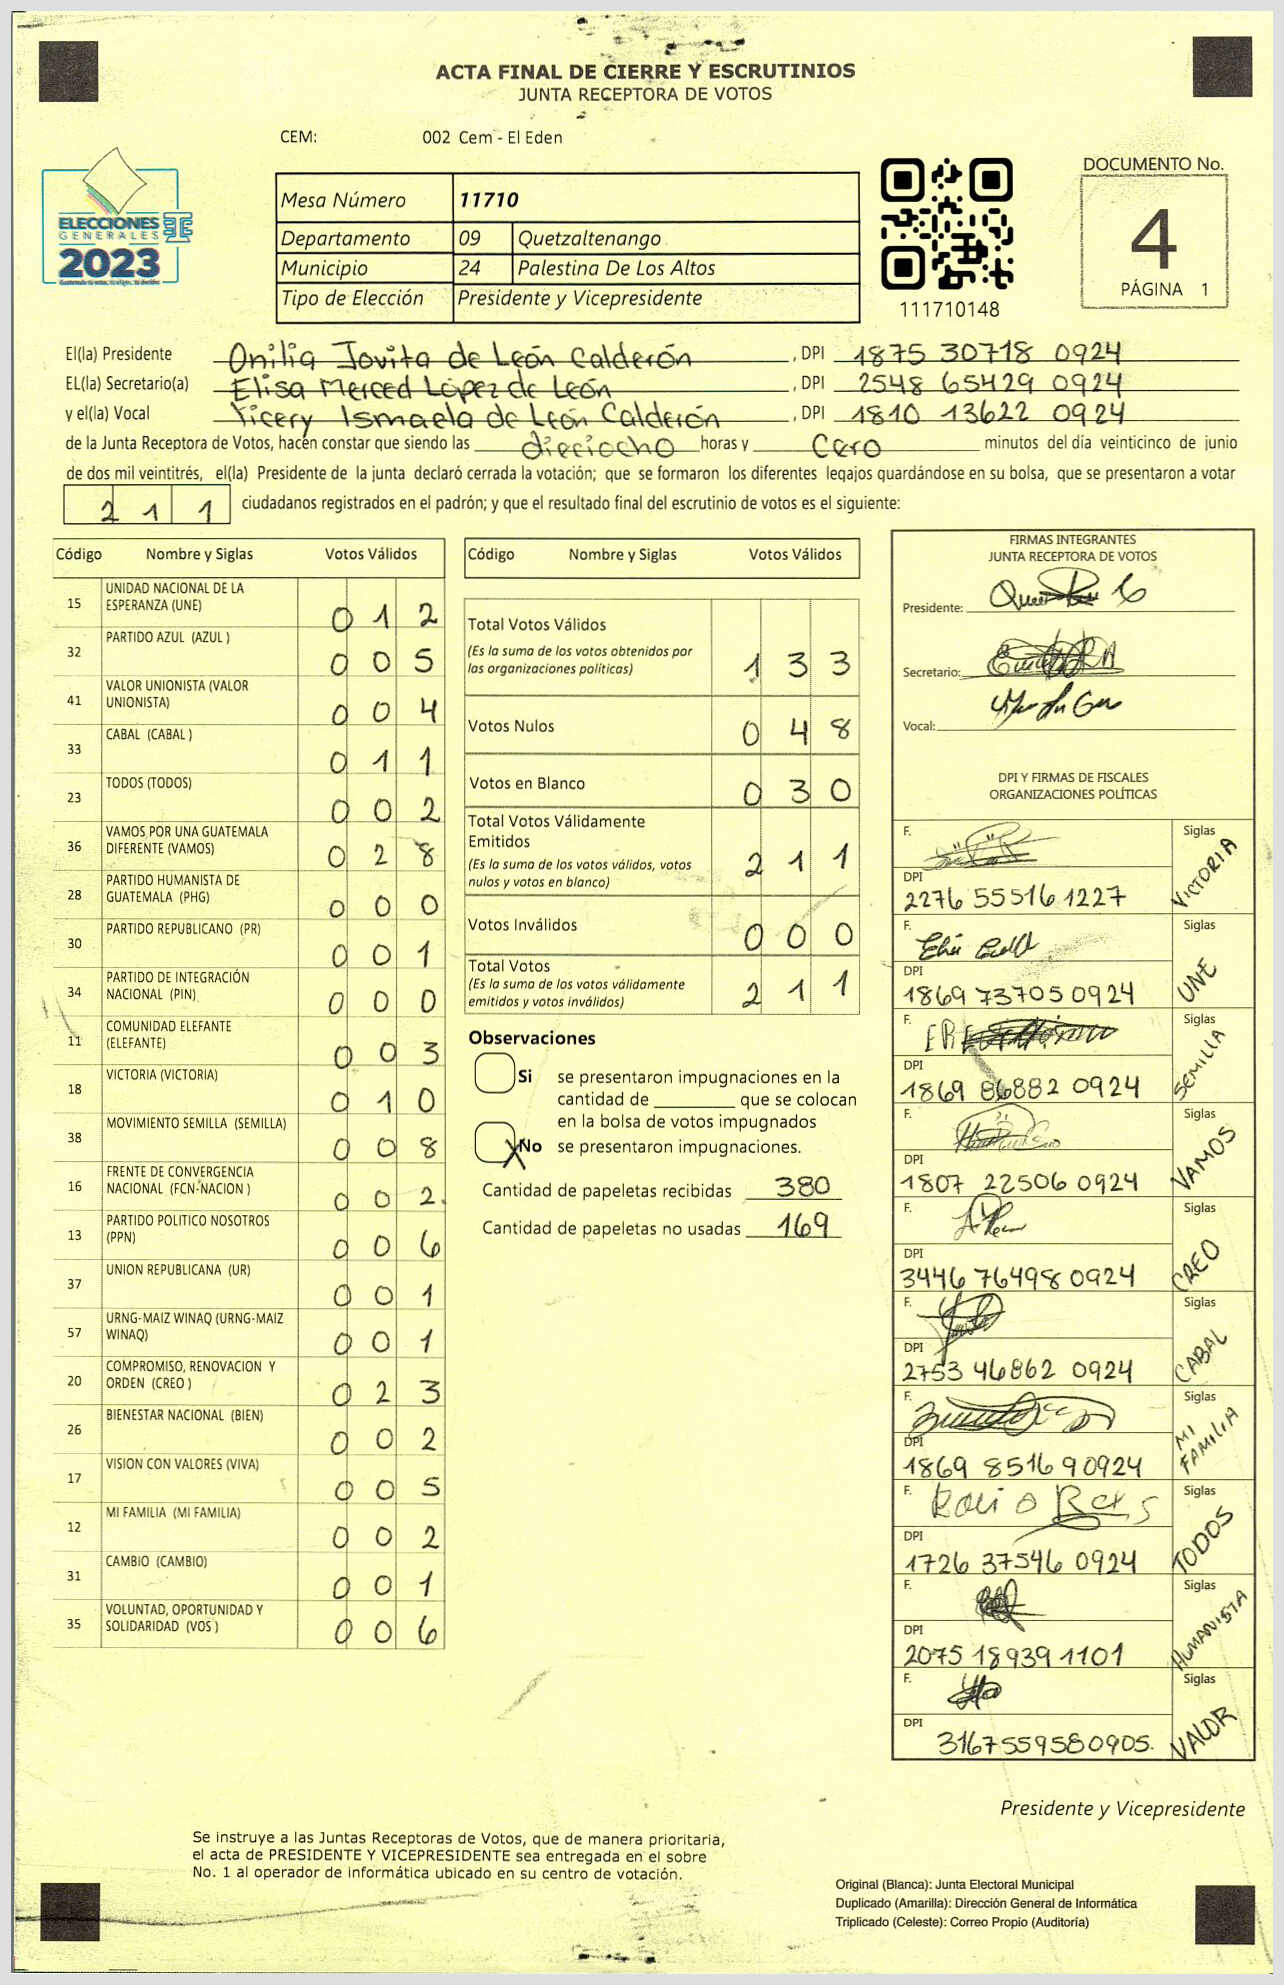 ACTA FINAL DE CIERRE Y ESCRUTINIOS
JUNTA RECEPTORA DE VOTOS
CEM: 002 Cem - El Eden
ELECCIONES
GENERALES
2023
Mesa Número 11710
Departamento 09 Quetzaltenango
Municipio 24 Palestina De Los Altos
Tipo de Elección Presidente y Vicepresidente
111710148
DOCUMENTO No.
4
PÁGINA 1
El(la) Presidente Onilia Jovita de León Calderón , DPI 1875 30718 0924
EL(la) Secretario(a) Elisa Merced López de León , DPI 2548 65429 0924
y el(la) Vocal Yicery Ismaela de León Calderón , DPI 1810 13622 0924
de la Junta Receptora de Votos, hacen constar que siendo las dieciocho horas y Cero minutos del día veinticinco de junio
de dos mil veintitrés, el(la) Presidente de la junta declaró cerrada la votación; que se formaron los diferentes legajos guardándose en su bolsa, que se presentaron a votar
211 ciudadanos registrados en el padrón; y que el resultado final del escrutinio de votos es el siguiente:
Código Nombre y Siglas Votos Válidos
15 UNIDAD NACIONAL DE LA ESPERANZA (UNE) 012
32 PARTIDO AZUL (AZUL ) 005
41 VALOR UNIONISTA (VALOR UNIONISTA) 004
33 CABAL (CABAL ) 011
23 TODOS (TODOS) 002
36 VAMOS POR UNA GUATEMALA DIFERENTE (VAMOS) 028
28 PARTIDO HUMANISTA DE GUATEMALA (PHG) 000
30 PARTIDO REPUBLICANO (PR) 001
34 PARTIDO DE INTEGRACIÓN NACIONAL (PIN) 000
11 COMUNIDAD ELEFANTE (ELEFANTE) 003
18 VICTORIA (VICTORIA) 010
38 MOVIMIENTO SEMILLA (SEMILLA) 008
16 FRENTE DE CONVERGENCIA NACIONAL (FCN-NACION ) 002
13 PARTIDO POLITICO NOSOTROS (PPN) 006
37 UNION REPUBLICANA (UR) 001
57 URNG-MAIZ WINAQ (URNG-MAIZ WINAQ) 001
20 COMPROMISO, RENOVACION Y ORDEN (CREO ) 023
26 BIENESTAR NACIONAL (BIEN) 002
17 VISION CON VALORES (VIVA) 005
12 MI FAMILIA (MI FAMILIA) 002
31 CAMBIO (CAMBIO) 001
35 VOLUNTAD, OPORTUNIDAD Y SOLIDARIDAD (VOS ) 006
Código Nombre y Siglas Votos Válidos
Total Votos Válidos 133
(Es la suma de los votos obtenidos por
las organizaciones políticas)
Votos Nulos 048
Votos en Blanco 030
Total Votos Válidamente
Emitidos 211
(Es la suma de los votos válidos, votos
nulos y votos en blanco)
Votos Inválidos 000
Total Votos 211
(Es la suma de los votos válidamente
emitidos y votos inválidos)
Observaciones
Si se presentaron impugnaciones en la
cantidad de ________ que se colocan
en la bolsa de votos impugnados
X No se presentaron impugnaciones.
Cantidad de papeletas recibidas 380
Cantidad de papeletas no usadas 169
FIRMAS INTEGRANTES
JUNTA RECEPTORA DE VOTOS
Presidente:
Secretario:
Vocal:
DPI Y FIRMAS DE FISCALES
ORGANIZACIONES POLÍTICAS
F. Siglas VICTORIA
DPI 2276 55516 1227
F. Siglas UNE
DPI 1869 73705 0924
F. Siglas SEMILLA
DPI 1869 86882 0924
F. Siglas VAMOS
DPI 1807 22506 0924
F. Siglas CREO
DPI 3446 76498 0924
F. Siglas CABAL
DPI 2753 46862 0924
F. Siglas MI FAMILIA
DPI 1869 85169 0924
F. Siglas TODOS
DPI 1726 37546 0924
F. Siglas HUMANISTA
DPI 2075 18939 1101
F. Siglas VALOR
DPI 3167559580905.
Presidente y Vicepresidente
Se instruye a las Juntas Receptoras de Votos, que de manera prioritaria,
el acta de PRESIDENTE Y VICEPRESIDENTE sea entregada en el sobre
No. 1 al operador de informática ubicado en su centro de votación.
Original (Blanca): Junta Electoral Municipal
Duplicado (Amarilla): Dirección General de Informática
Triplicado (Celeste): Correo Propio (Auditoría)